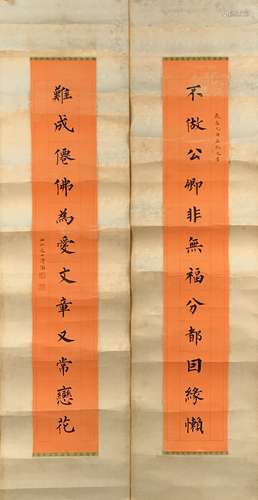 不做公卿非無福分都因緣懶
難成僊佛為愛文章又常戀花